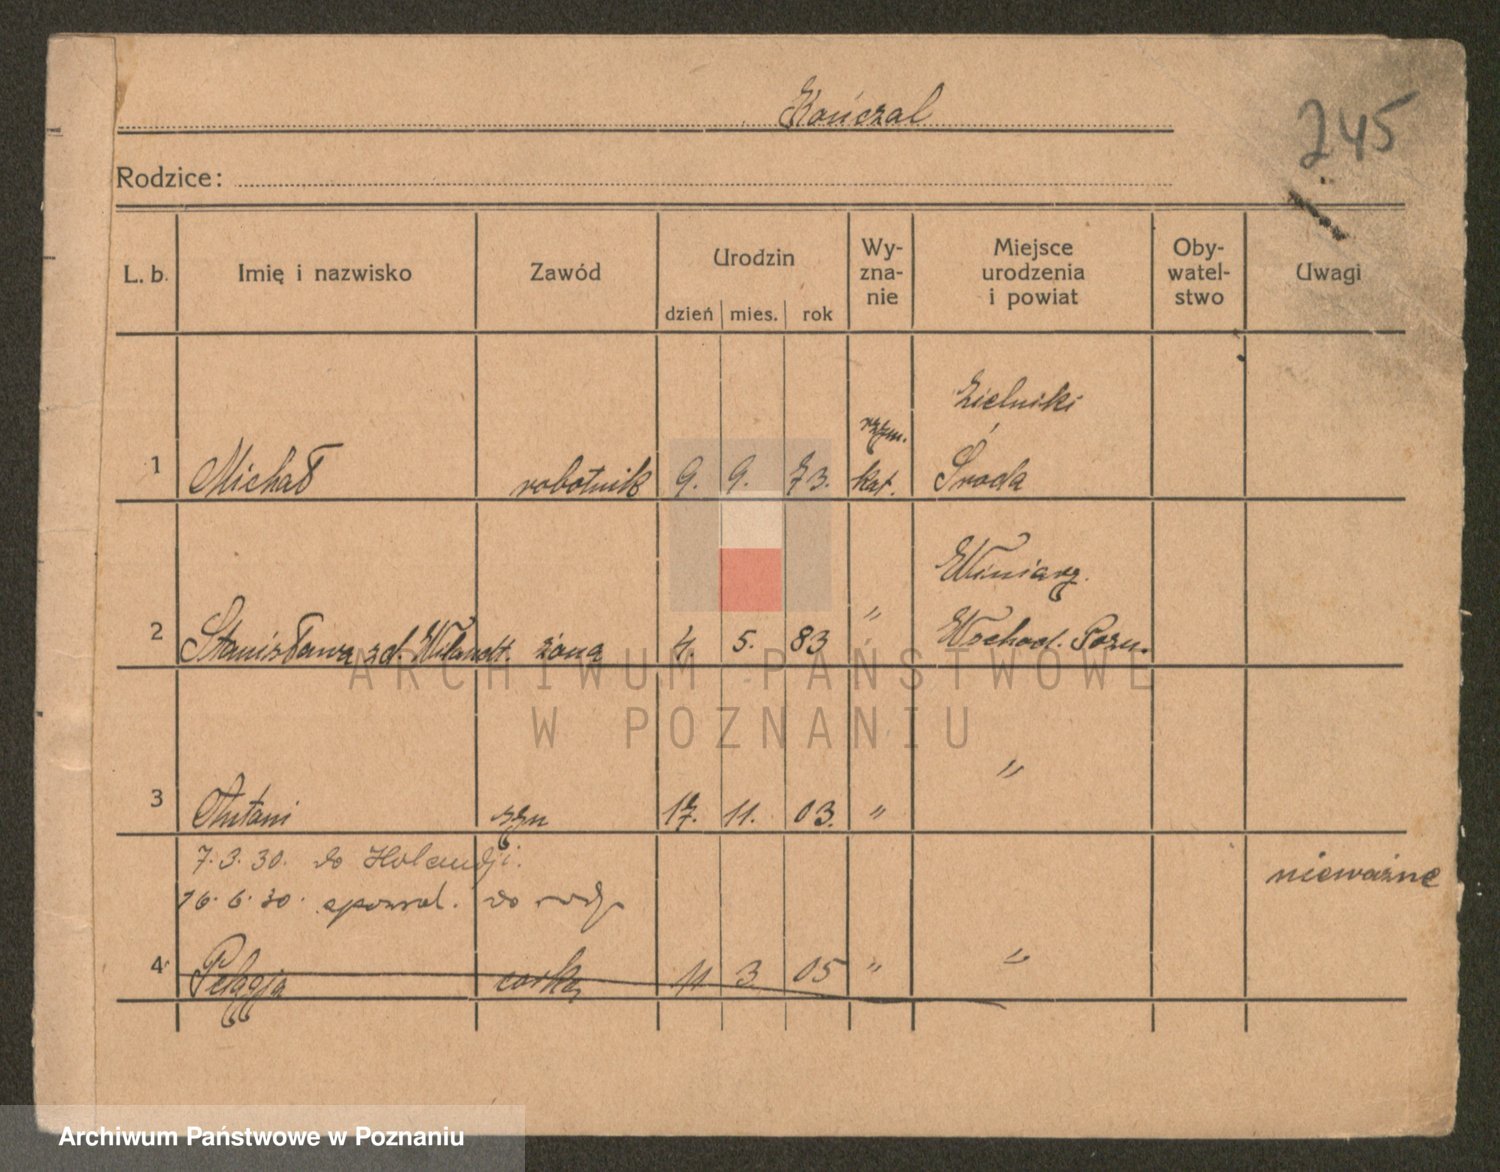 Kończal
245
Rodzice:
L. b. Imię i nazwisko Zawód Urodzin Wy-zna-nie Miejsce urodzenia i powiat Oby-watel-stwo Uwagi
dzień mies. rok
Zielniki
rzym.
1 Michał robotnik 9. 9. 73. kat. Środa
Winiary
2 Stanisława zd. żona 4. 5. 83 " Wschod. Pozn.
"
3 Antoni syn 17. 11. 03. "
7.3.30. do Holandji. nieważne
16.6.30. do
4 Pelagja córka 11 3 05 " "
ARCHIWUM PAŃSTWOWE
W POZNANIU
Archiwum Państwowe w Poznaniu